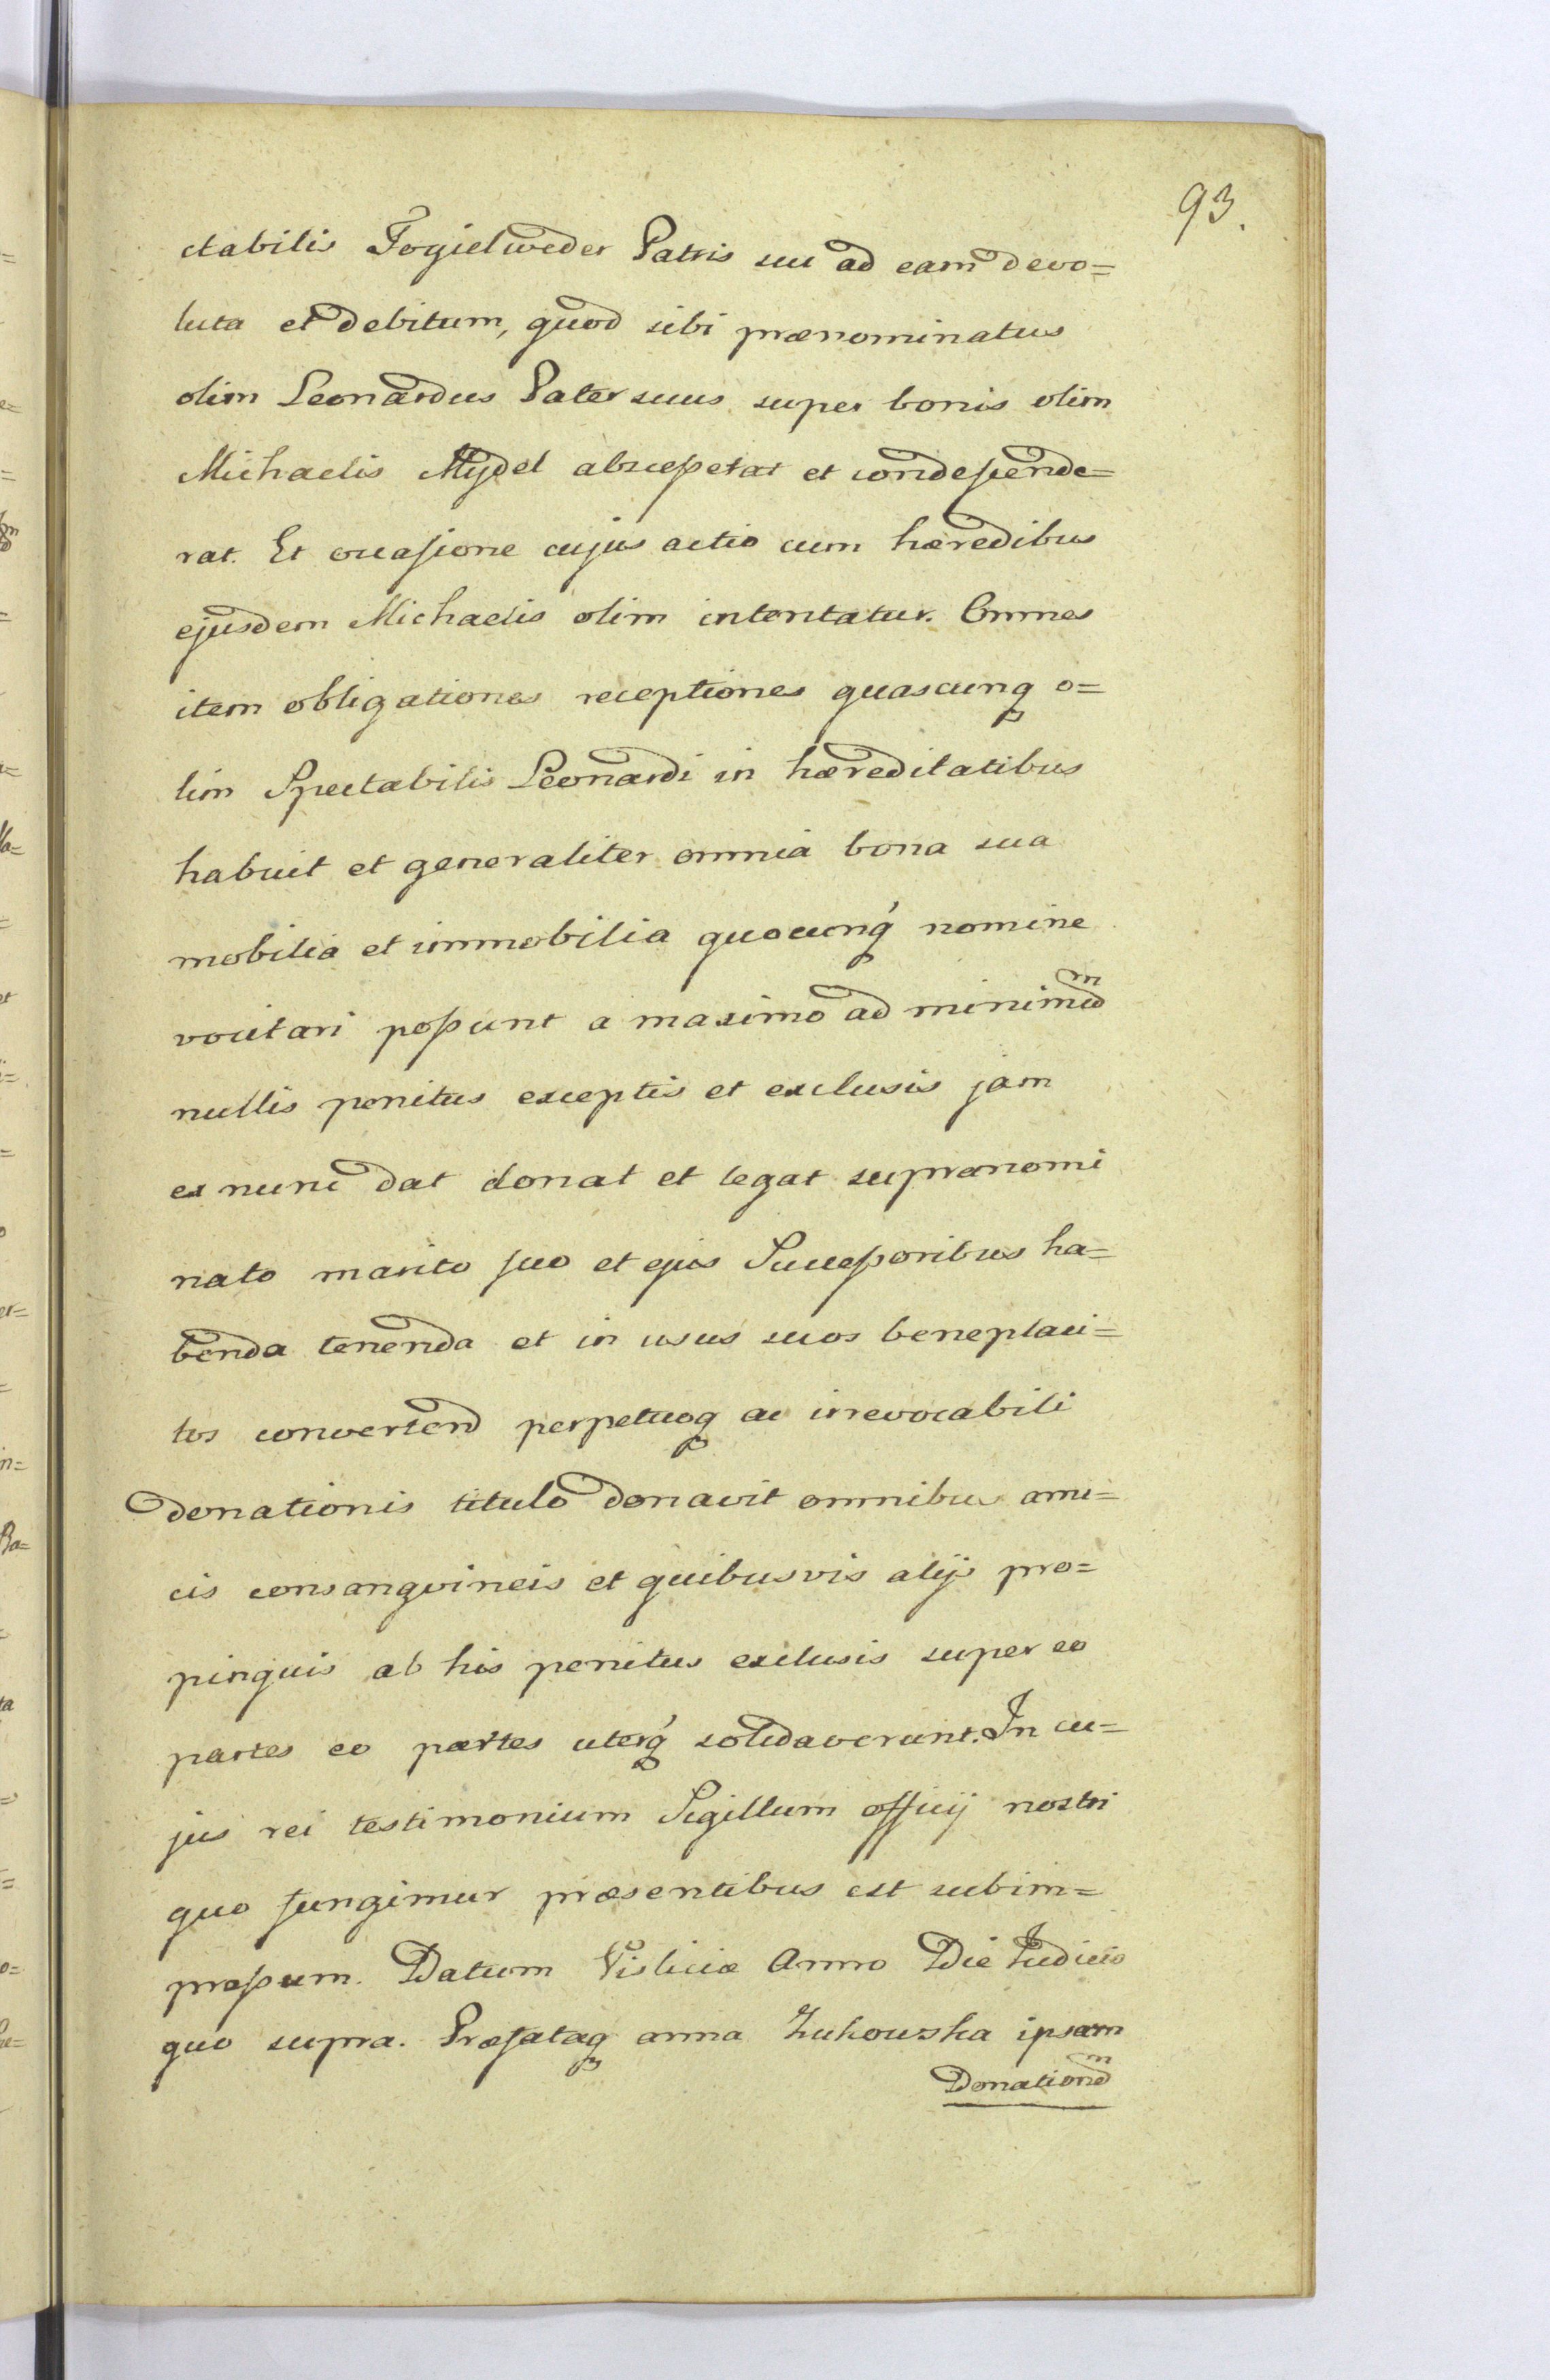 93.
ctabilis Fogielweder Patris sui ad eam devo=
luta et debitum, quod sibi prænominatus
olim Leonardus Pater suus super bonis olim
Michaelis Mydel et condescende=
rat. Et occasione cujus actio cum hæredibus
ejusdem Michaelis olim intentatur. Omnes
item obligationes receptiones quascunq o=
lim Spectabilis Leonardi in hæreditatibus
habuit et generaliter omnia bona sua
mobilia et immobilia quocunq́ nomine
vocitari possunt a maximo ad minimũ
nullis penitus exceptis et exclusis jam
ex nunc dat donat et legat supranomi
nato marito suo et ejus Successoribus ha=
benda tenenda et in usus suos beneplaci=
tos convertend perpetuoq ac irrevocabili
donationis titulo donavit omnibus ami=
cis consangvineis et quibusvis alijs pro=
pinquis ab his penitus exclusis super eo
partes eo partes uterq́ solidaverunt. In cu=
jus rei testimonium Sigillum officij nostri
quo fungimur præsentibus est subim=
pressum. Datum Visliciæ Anno Die Judicio
quo supra. Præfataq anna Zukowska ipsam
Donationem